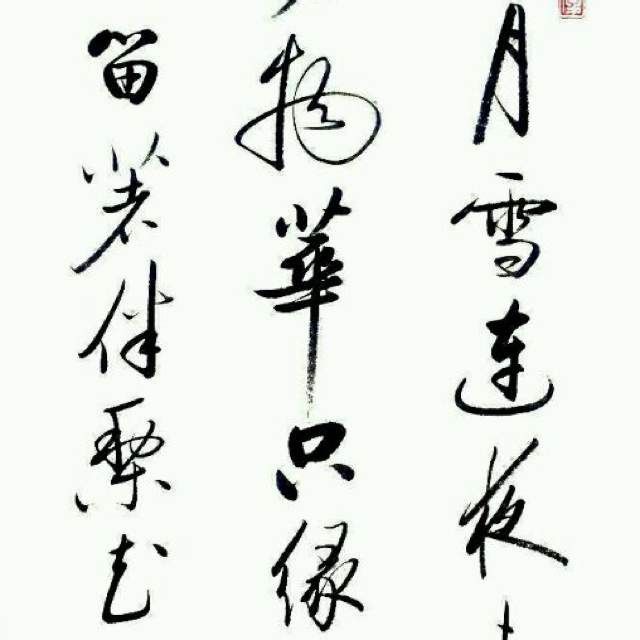 月雪連夜
物華只緣
留著伴梨花